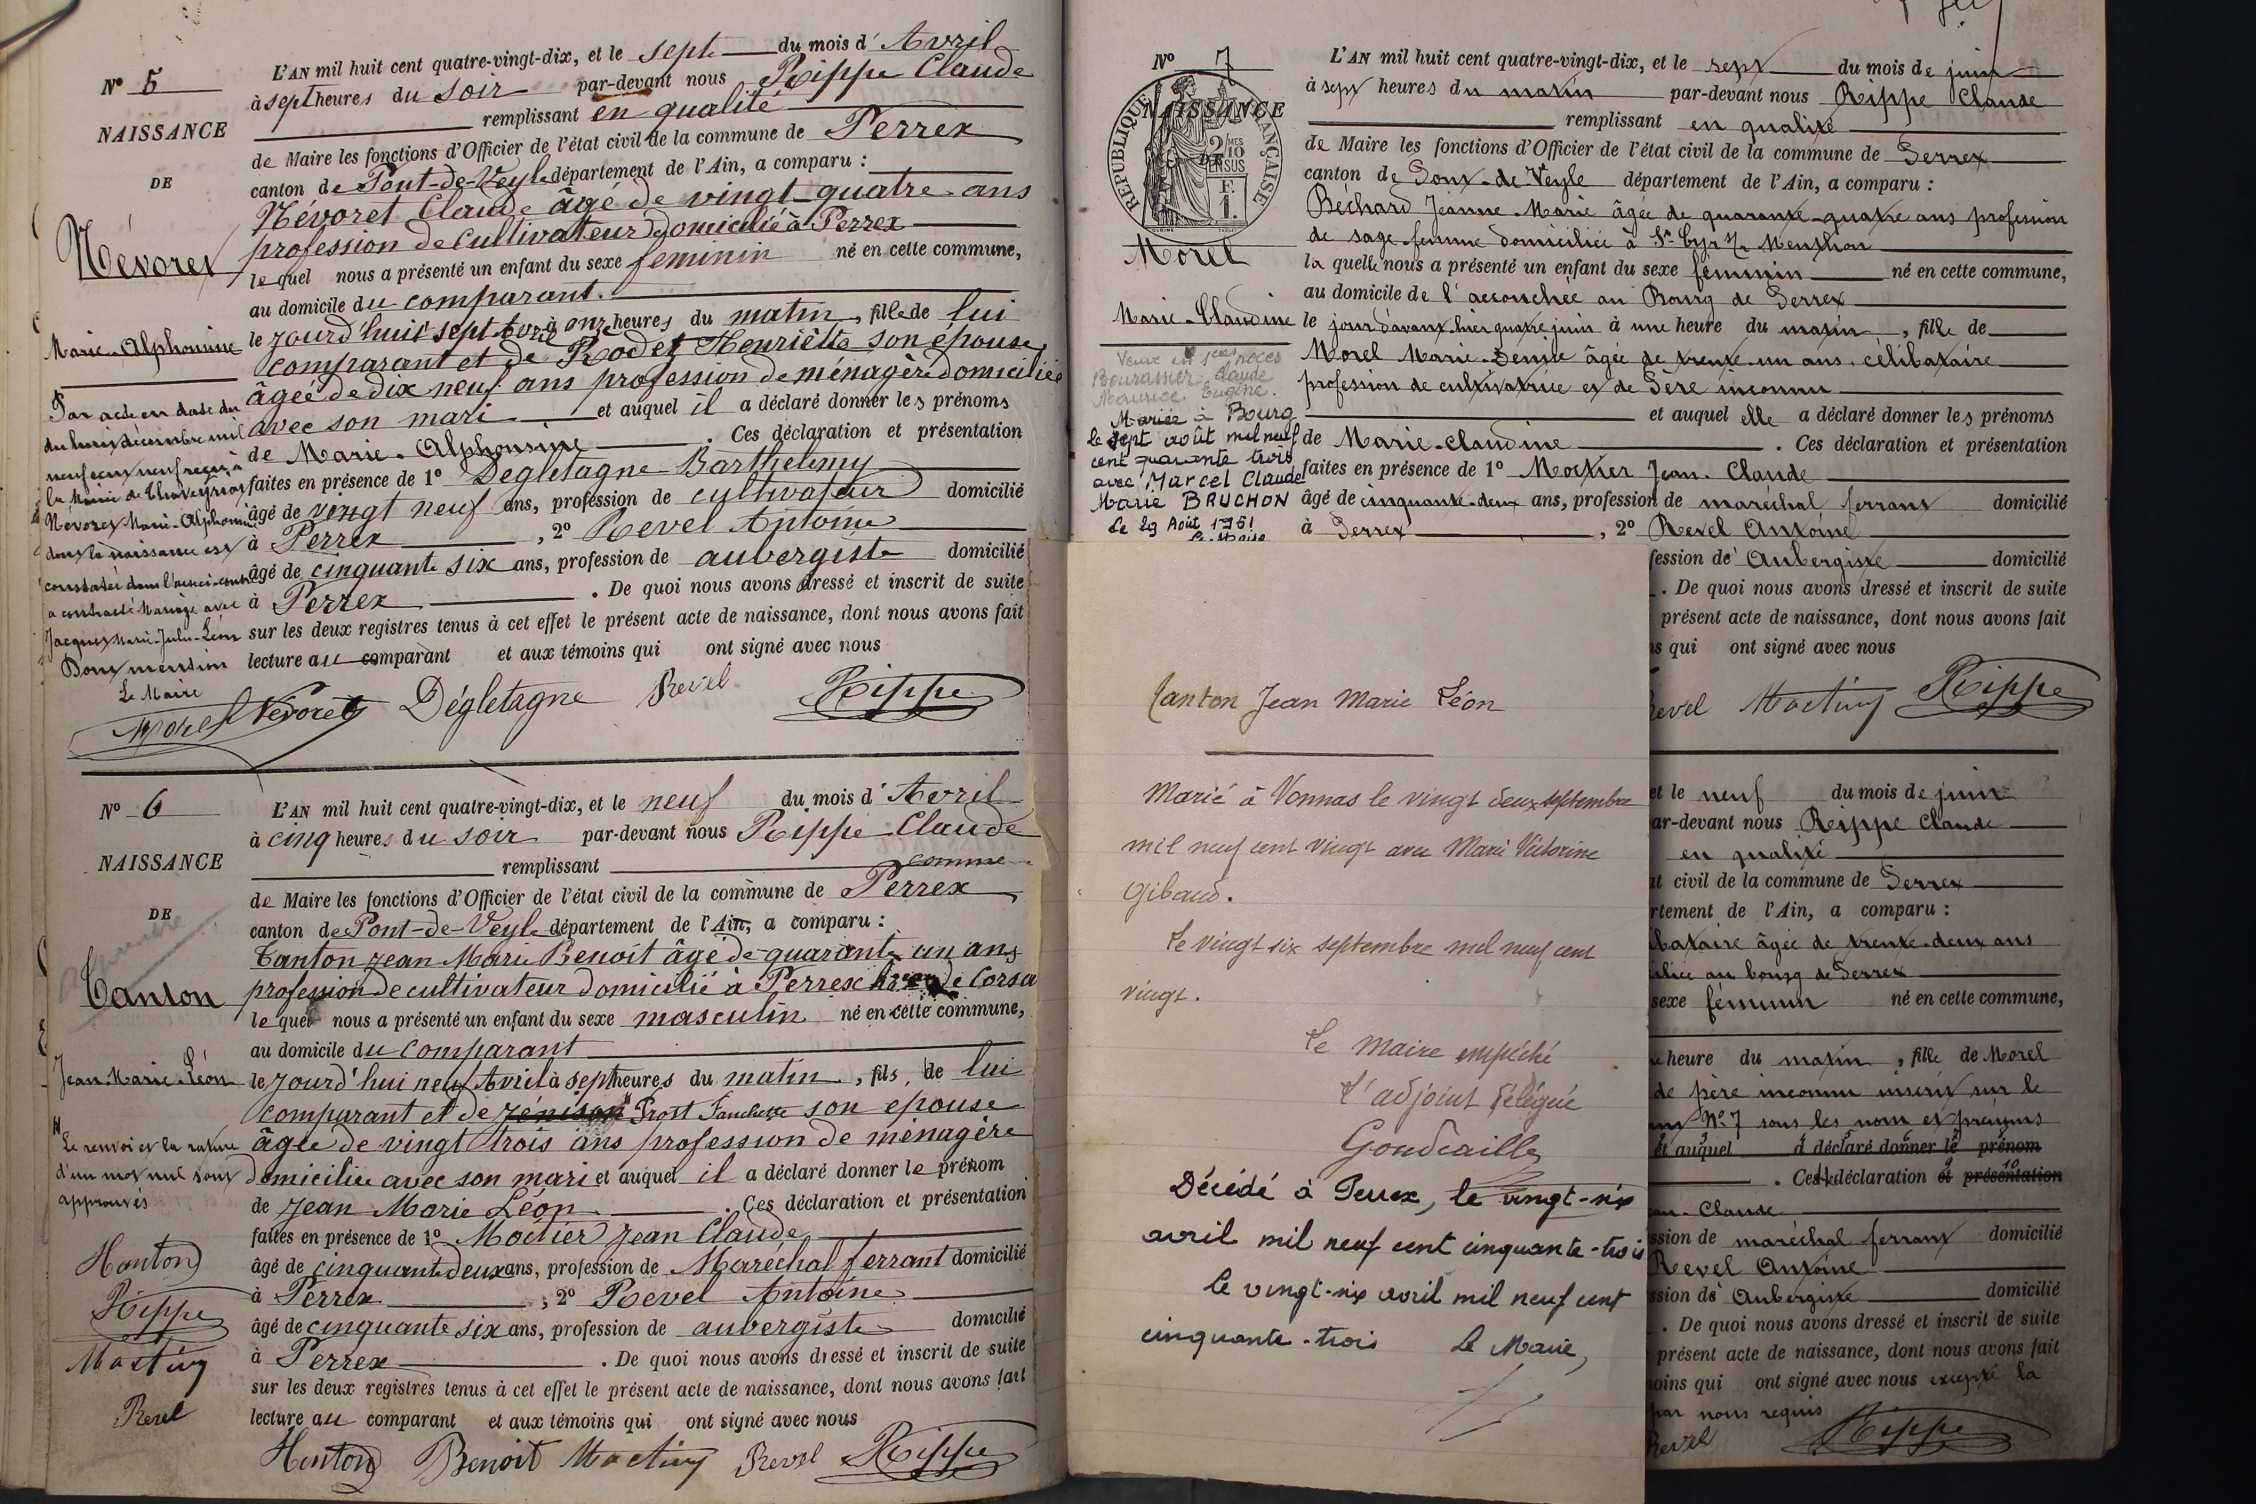 N° 5
NAISSANCE
DE
Névoret
Marie-Alphonsine
Par acte en date du
du trois décembre mil
neuf cent neuf reçu à
la Mairie de
Névoret Marie-Alphonsine
dont la naissance est
constatée dans l'acte ci-contre
a contracté Mariage avec
Jacquet Marie-Jules-Léon
Dont mention
Le Maire
Morel
L'AN mil huit cent quatre-vingt-dix, et le sept du mois d'Avril
à sept heures du soir par-devant nous Rippe Claude
remplissant en qualité
de Maire les fonctions d'Officier de l'état civil de la commune de Perrex
canton de Pont-de-Veyle département de l'Ain, a comparu :
Névoret Claude âgé de vingt-quatre ans
profession de cultivateur domicilié à Perrex
lequel nous a présenté un enfant du sexe féminin né en cette commune,
au domicile du comparant.
le jourd'hui sept Avril à onze heures du matin, fille de lui
comparant et de Rodet Henriette son épouse,
âgée de dix neuf ans profession de ménagère domiciliée
avec son mari et auquel il a déclaré donner les prénoms
de Marie-Alphonsine. Ces déclaration et présentation
faites en présence de 1° Degletagne Barthélemy
âgé de vingt neuf ans, profession de cultivateur domicilié
à Perrex, 2° Revel Antoine
âgé de cinquante six ans, profession de aubergiste domicilié
à Perrex. De quoi nous avons dressé et inscrit de suite
sur les deux registres tenus à cet effet le présent acte de naissance, dont nous avons fait
lecture au comparant et aux témoins qui ont signé avec nous
Nevoret Dégletagne Revel Rippe
N° 6
NAISSANCE
DE
Tanton
Jean-Marie-Léon
Le renvoi et la rature
d'un mot nul sont
approuvés
Tanton
Rippe
Moctier
Revel
L'AN mil huit cent quatre-vingt-dix, et le neuf du mois d'Avril
à cinq heures du soir par-devant nous Rippe Claude
remplissant comme
de Maire les fonctions d'Officier de l'état civil de la commune de Perrex
canton de Pont-de-Veyle département de l'Ain, a comparu :
Tanton Jean Marie Benoit âgé de quarante un ans
profession de cultivateur domicilié à Perrex hameau de Corsa
lequel nous a présenté un enfant du sexe masculin né en cette commune,
au domicile du comparant
le jourd'hui neuf Avril à sept heures du matin, fils de lui
comparant et de Prost Fanchette son épouse
âgée de vingt trois ans profession de ménagère
domiciliée avec son mari et auquel il a déclaré donner le prénom
de Jean Marie Léon. Ces déclaration et présentation
faites en présence de 1° Moctier Jean Claude
âgé de cinquante deux ans, profession de Maréchal ferrant domicilié
à Perrex, 2° Revel Antoine
âgé de cinquante six ans, profession de aubergiste domicilié
à Perrex. De quoi nous avons dressé et inscrit de suite
sur les deux registres tenus à cet effet le présent acte de naissance, dont nous avons fait
lecture au comparant et aux témoins qui ont signé avec nous
Tanton Benoit Moctier Revel Rippe
N° 7
NAISSANCE
DE
REPUBLIQUE FRANÇAISE
2/10 EN SUS
F.
1.
Morel
Marie-Claudine
Veuve en 1ères noces
Bourassier Claude
Maurice Eugène.
Mariée à Bourg
le sept août mil neuf
cent quarante trois
avec Marcel Claude
Marie BRUCHON
Le 29 Août 1951
Le Maire
L'AN mil huit cent quatre-vingt-dix, et le sept du mois de juin
à sept heures du matin par-devant nous Rippe Claude
remplissant en qualité
de Maire les fonctions d'Officier de l'état civil de la commune de Perrex
canton de Pont-de-Veyle département de l'Ain, a comparu :
Béchard Jeanne-Marie âgée de quarante-quatre ans profession
de sage femme domiciliée à St Cyr s/ Menthon
laquelle nous a présenté un enfant du sexe féminin né en cette commune,
au domicile de l'accouchée au Bourg de Perrex
le jour d'avant-hier quatre juin à une heure du matin, fille de
Morel Marie-Denise âgée de trente-un ans célibataire
profession de cultivatrice et de Père inconnu
et auquel elle a déclaré donner les prénoms
de Marie-Claudine. Ces déclaration et présentation
faites en présence de 1° Moctier Jean-Claude
âgé de cinquante-deux ans, profession de maréchal ferrant domicilié
à Perrex, 2° Revel Antoine
fession de Aubergiste domicilié
. De quoi nous avons dressé et inscrit de suite
présent acte de naissance, dont nous avons fait
s qui ont signé avec nous
Revel Moctier Rippe
Tanton Jean Marie Léon
Marié à Vonnas le vingt deux septembre
mil neuf cent vingt avec Marie Victorine
Gibaud.
Le vingt six septembre mil neuf cent
vingt.
Le Maire empêché
L'adjoint délégué
Goudeaille
Décédé à Perrex, le vingt-six
avril mil neuf cent cinquante-trois
Le vingt-six avril mil neuf cent
cinquante-trois Le Maire,
et le neuf du mois de juin
ar-devant nous Rippe Claude
en qualité
at civil de la commune de Perrex
rtement de l'Ain, a comparu :
libataire âgée de trente-deux ans
cilice au bourg de Perrex
sexe féminin né en cette commune,
e heure du matin, fille de Morel
de père inconnu inscrit sur le
N° 7 sous les nom et prénoms
et auquel a déclaré donner le prénom
. Ces déclaration et présentation
an-Claude
ssion de maréchal ferrant domicilié
Revel Antoine
ssion de Aubergiste domicilié
. De quoi nous avons dressé et inscrit de suite
présent acte de naissance, dont nous avons fait
oins qui ont signé avec nous excepté la
par nous requis
Revel Rippe